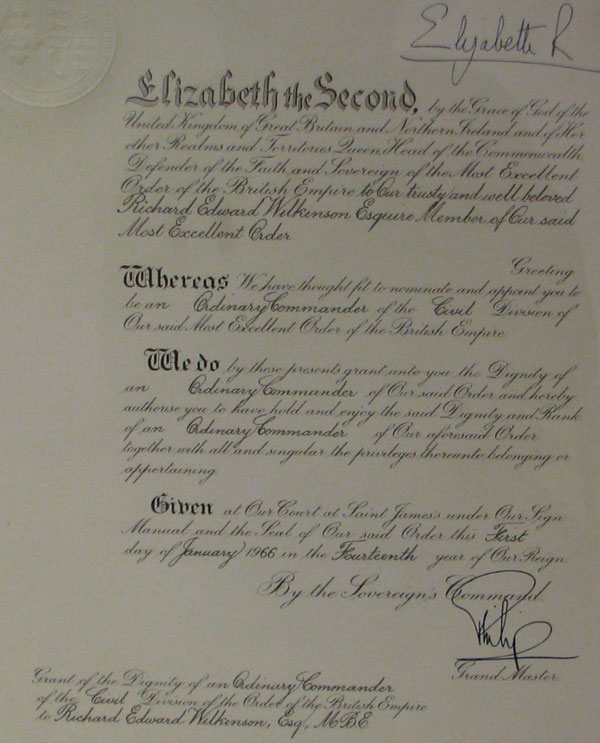 Elizabeth R
Elizabeth the Second, by the Grace of God of the
United Kingdom of Great Britain and Northern Ireland and of Her
other Realms and Territories Queen, Head of the Commonwealth,
Defender of the Faith and Sovereign of the Most Excellent
Order of the British Empire to Our trusty and well beloved
Richard Edward Wilkinson Esquire Member of Our said
Most Excellent Order
Greeting
Whereas We have thought fit to nominate and appoint you to
be an Ordinary Commander of the Civil Division of
Our said Most Excellent Order of the British Empire
We do by these presents grant unto you the Dignity of
an Ordinary Commander of Our said Order and hereby
authorise you to have hold and enjoy the said Dignity and Rank
of an Ordinary Commander of Our aforesaid Order
together with all and singular the privileges thereunto belonging or
appertaining.
Given at Our Court at Saint James's under Our Sign
Manual and the Seal of Our said Order this First
day of January 1966 in the Fourteenth year of Our Reign.
By the Sovereign's Command.
Philip
Grand Master.
Grant of the Dignity of an Ordinary Commander
of the Civil Division of the Order of the British Empire
to Richard Edward Wilkinson, Esq., MBE